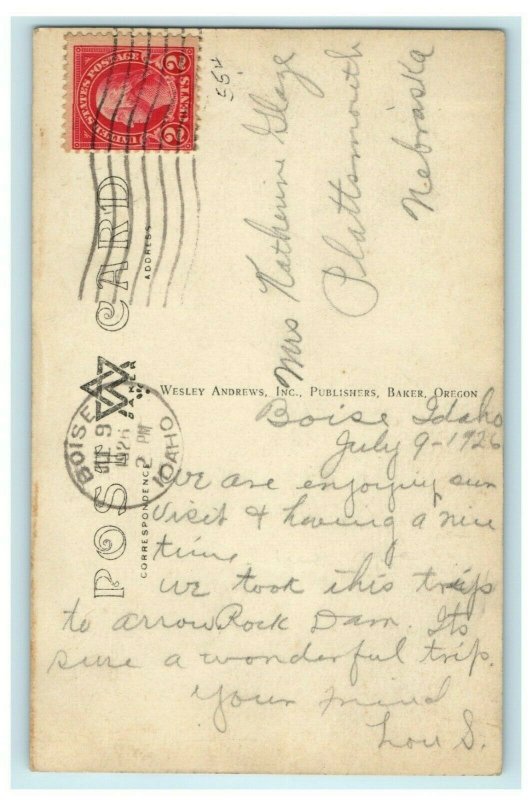 UNITED STATES POSTAGE
2 CENTS 2
554
Mrs Katherine Glaze
Plattsmouth
Nebraska
POST CARD
ADDRESS
CORRESPONDENCE
WESLEY ANDREWS, INC., PUBLISHERS, BAKER, OREGON
BOISE
9
2 PM
1926
IDAHO
Boise Idaho
July 9-1926
We are enjoying our
visit & having a nice
time
We took this trip
to arrowRock Dam. Its
sure a wonderful trip.
Your
Lou S.